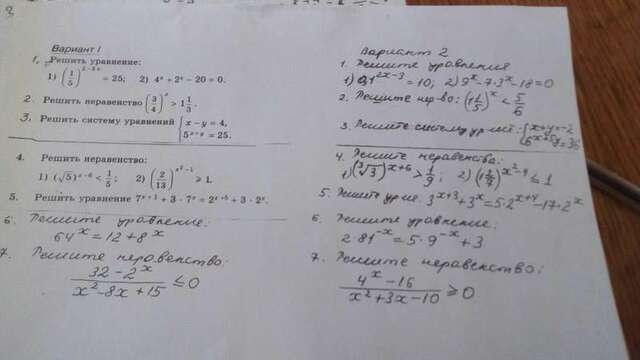 Вариант I
1. Решить уравнение:
1) (1/5)^(2-3x) = 25; 2) 4^x + 2^x - 20 = 0.
2. Решить неравенство (3/4)^x > 1 1/3.
3. Решить систему уравнений { x - y = 4,
5^(x+y) = 25.
4. Решить неравенство:
1) (√5)^(x-6) < 1/5; 2) (2/13)^(x²-1) ≥ 1.
5. Решить уравнение 7^(x+1) + 3 · 7^x = 2^(x+5) + 3 · 2^x.
6. Решите уравнение:
64^x = 12 + 8^x
7. Решите неравенство:
(32 - 2^x)/(x² - 8x + 15) ≤ 0
Вариант 2
1. Решите уравнения
1) 0,1^(2x-3) = 10; 2) 9^x - 7·3^x - 18 = 0
2. Решите нер-во: (1 1/5)^x < 5/6
3. Решите систему ур
{ x + y = -2
6^(x+5y) = 36
4. Решите неравенства:
1) (∛3)^(x+6) > 1/9; 2) (1 2/7)^(x²-4) ≤ 1
5. Решить ур-ие. 3^(x+3) + 3^x = 5·2^(x+4) - 17·2^x
6. Решите уравнение:
2·81^(-x) = 5·9^(-x) + 3
7. Решите неравенство:
(4^x - 16)/(x² + 3x - 10) ≥ 0